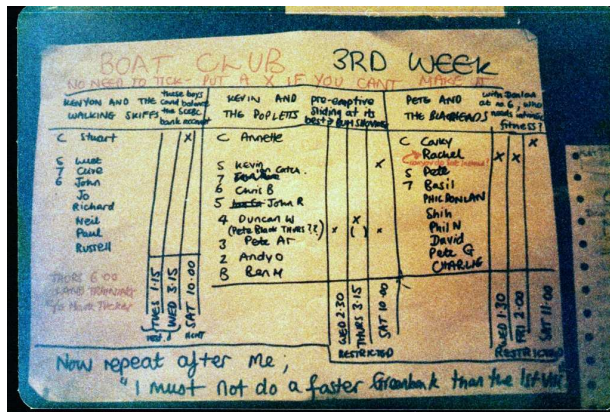 BOAT CLUB 3RD WEEK
NO NEED TO TICK - PUT A X IF YOU CANT MAKE IT
KENYON AND THE
WALKING SKIFFS
these boys
could balance
the SCBC
bank account
C Stuart X
S
7
6 John
Jo
Richard
Neil
Paul
Russell
THURS 6:00
LAND TRAINING
TUES 1.15
WED 3.15
SAT 10:00
KEVIN AND
THE POPLETTS
pre-emptive
sliding at its
best →
C Annette
S Kevin X
7 Catch.
6 Chris B
5 John R
4 Duncan W X
(Pete Black THURS??) X ( ) X
3 Pete Ar
2 Andy O
B Ben M
WED 2.30
THURS 3.15
SAT 10:00
RESTRICTED
PETE AND
THE BLAGHEADS
at no 6, who
needs
fitness?
C X
Rachel X X
S Pete
7 Basil
PHIL
Shih
Phil N
David
Pete G
CHARLIE
WED 1.30
FRI 2:00
SAT 11:00
RESTRICTED
Now repeat after me;
"I must not do a faster Greenbank than the 1st VIII